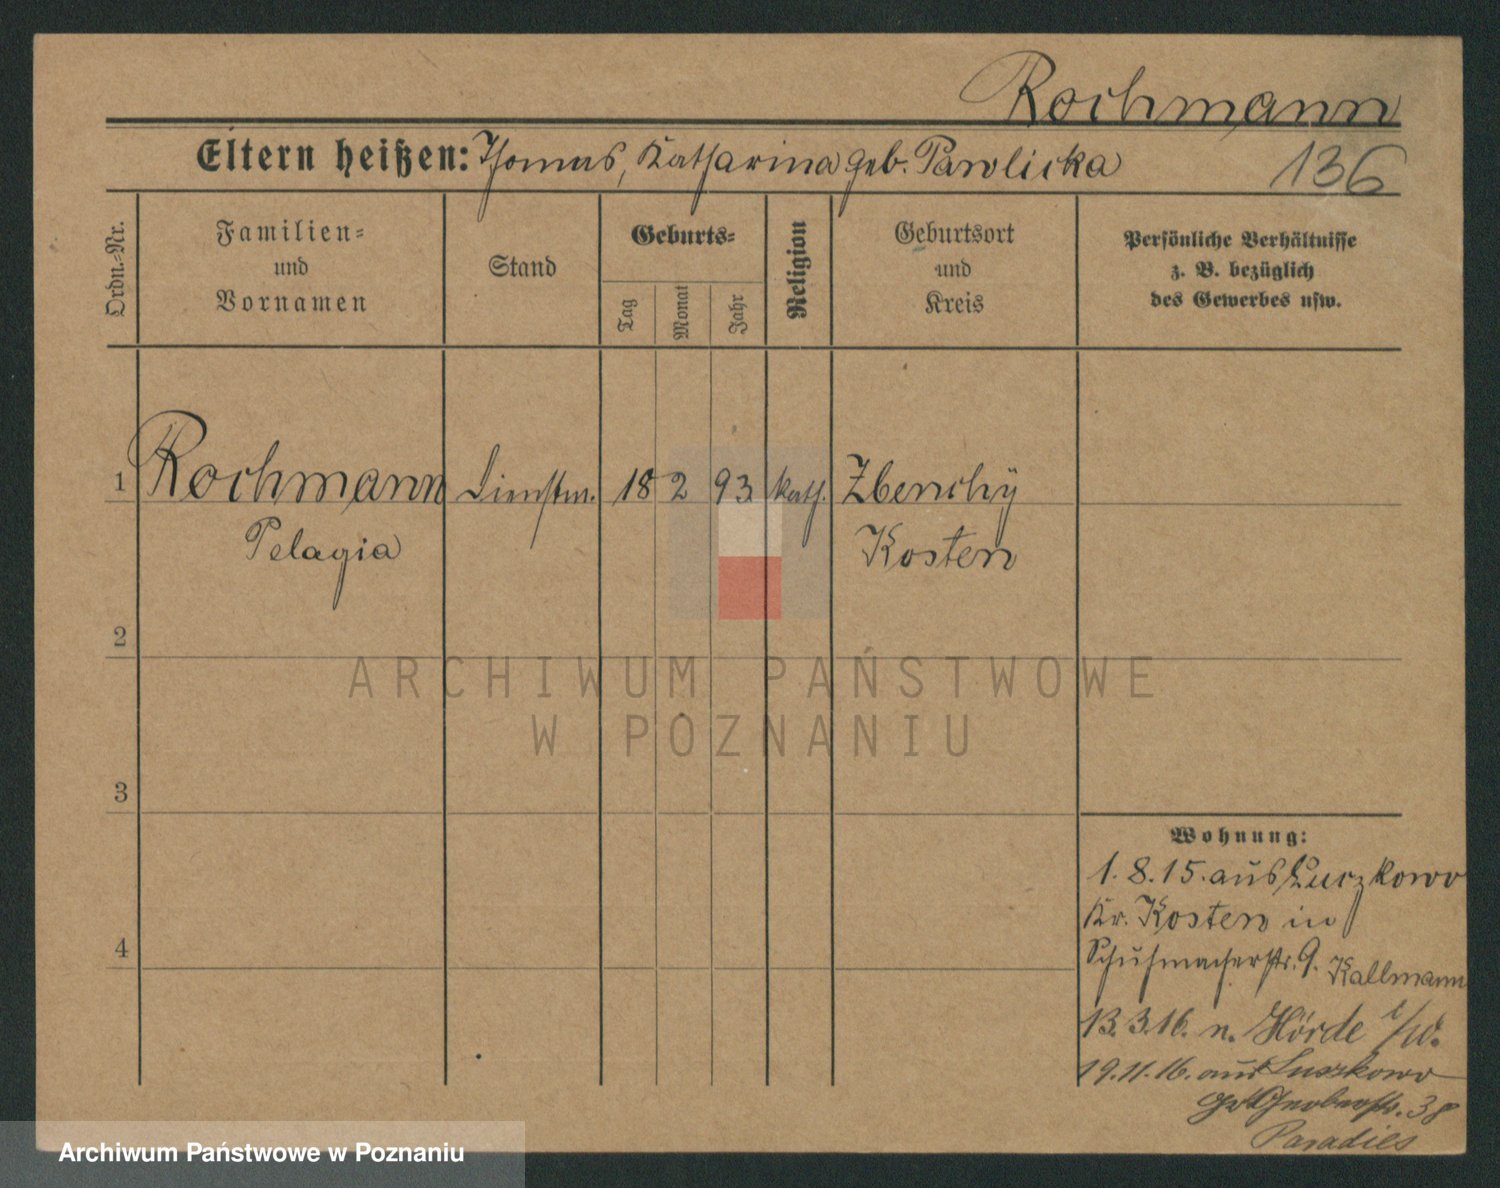 Rochmann
Eltern heißen: Thomas, Katharina geb. Pawlicka
136
Ordn.-Nr.
Familien-
und
Vornamen
Stand
Geburts-
Tag
Monat
Jahr
Religion
Geburtsort
und
Kreis
Persönliche Verhältnisse
z. B. bezüglich
des Gewerbes usw.
1 Rochmann Dienstm. 18 2 93 kath. Zbenchÿ
Pelagia Kosten
2
ARCHIWUM PAŃSTWOWE
W POZNANIU
3
Wohnung:
1.8.15. aus Luczkowo
Kr. Kosten in
4
Schuhmacherstr. 9. Kallmann
13.3.16. n. Hörde i/W.
19.11.16. aus Luszkowo
38
Paradies
Archiwum Państwowe w Poznaniu